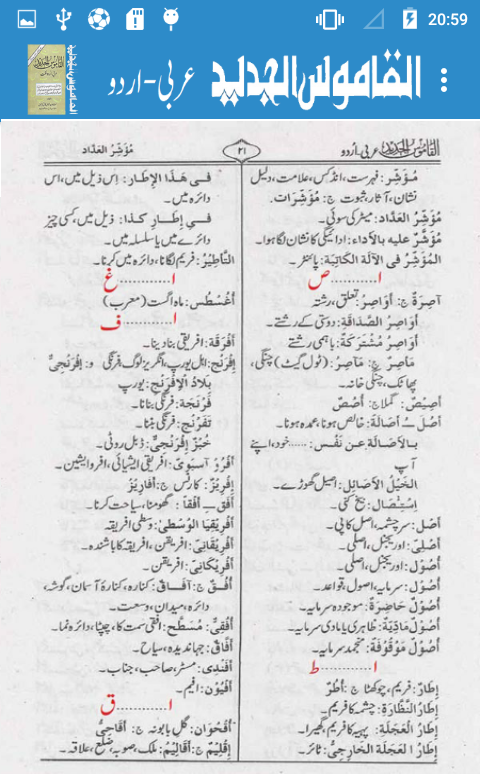 20:59
القاموس الجدید عربی-اردو
القاموس الجدید عربی، اردو
۲۱
مُؤَشِّرُ العَدَّاد
مُؤَشِّر: فہرست، انڈکس، علامت، دلیل
نشان، آثار، ثبوت ج: مُؤَشِّرَات.
مُؤَشِّرُ العَدَّاد: میٹر کی سوئی۔
مُؤَشَّر علیه بالأداء: ادائیگی کا نشان لگا ہوا۔
المُؤَشِّرُ فی الآلة الکاتبة: پائنٹر۔
ا............ص
آصِرَةٌ ج: أَوَاصِرُ: تعلق، رشتہ
أَوَاصِرُ الصَّدَاقَةِ: دوستی کے رشتے۔
أَوَاصِرُ مُشْتَرِكَة: باہمی رشتے
مَاصِرٌ ج: مَآصِرُ: (ٹول گیٹ) چنگی،
پھاٹک، چنگی خانہ۔
أَصِیْصٌ: گملا ج: أُصُصٌ
أَصُلَ ـُ أَصَالَةً: خالص ہونا، عمدہ ہونا۔
بالأَصَالَةِ عَنْ نَفْسِ: ......خود، اپنے
آپ
الخَیْلُ الأَصَائِل: اصیل گھوڑے۔
اِسْتِئْصَال: بیخ کنی۔
أَصْل: سرچشمہ، اصل کاپی۔
أَصْلِیّ: اوریجنل، اصلی۔
أُصُوْل: اوریجنل، اصلی۔
أُصُوْل: سرمایہ، اصول، قواعد۔
أُصُوْل حَاضِرَة: موجودہ سرمایہ۔
أُصُوْل مَادِّیَّة: ظاہری یا مادی سرمایہ۔
أُصُوْل مَوْقُوْفَة: منجمد سرمایہ۔
ا............ط
إِطَارٌ: فریم، چوکھٹا ج: أُطُرٌ
إِطَارُ النَّظَّارَةِ: چشمہ کا فریم۔
إِطَارُ العَجَلَةِ: پہیہ کا فریم، گھیرا۔
إِطَارُ العَجَلَة الخَارِجِیُّ: ٹائر۔
فِی هَذَا الإِطَار: اس ذیل میں، اس
دائرہ میں۔
فِی إِطَار کَذَا: ذیل میں، کسی چیز
دائرے میں یا سلسلہ میں۔
التَّأطِیْرُ: فریم لگانا، دائرہ میں کرنا۔
ا............غ
أُغُسْطُس: ماہ اگست (معرب)
ا............ف
أَفْرَقَة: افریقی بنا دینا۔
إِفْرَنْج: اہل یورپ، انگریز لوگ، فرنگی و: إِفْرَنْجِیٌّ
بِلَادُ الإِفْرَنْج: یورپ
فَرْنَجَة: فرنگی بنانا۔
تَفَرْنُج: فرنگی بننا۔
خُبْز إِفْرَنْجِیٌّ: ڈبل روٹی۔
أَفْرُو آسِیَوِیّ: افریقی ایشیائی، افرو ایشین۔
إِفْرِیْزٌ: کارنس ج: أَفَارِیْزُ
أَفَقَ ـِ أَفْقًا: گھومنا، سیاحت کرنا۔
أَفْرِیْقِیَا الوُسْطَى: وسطی افریقہ
أَفْرِیْقَانِیّ: افریقن، افریقہ کا باشندہ۔
أَفْرِیْکَانِیّ: افریقن۔
أُفُقٌ ج: آفَاق: کنارہ، کنارۂ آسمان، گوشہ،
دائرہ، میدان، وسعت۔
أُفُقِیّ: مُسَطَّح: افقی سمت کا، چپٹا، دائرہ نما۔
أَفَّاق: جہاندیدہ، سیاح۔
أَفَنْدِی: مسٹر، صاحب، جناب۔
أَفْیُوْن: افیم۔
ا............ق
أُقْحُوَان: گل بابونہ ج: أَقَاحِیُّ
إِقْلِیْمٌ ج: أَقَالِیْمُ: ملک، صوبہ، ضلع، علاقہ۔